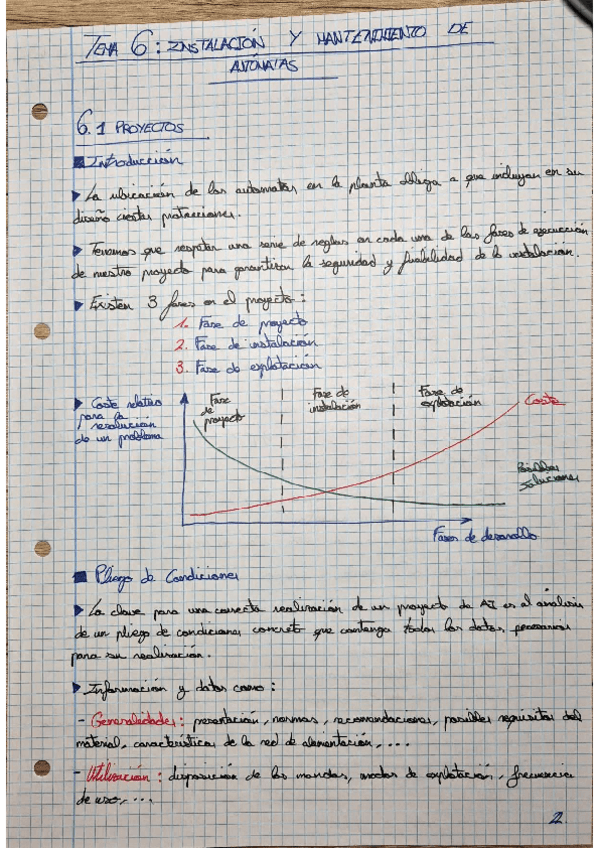 TEMA 6: INSTALACIÓN Y MANTENIMIENTO DE
AUTÓMATAS
6.1 PROYECTOS
Introducción
La ubicación de los automatas en la planta obliga a que incluyan en su
diseño ciertas protecciones.
Tenemos que respetar una serie de reglas en cada una de las fases de ejecucción
de nuestro proyecto para garantizar la seguridad y fiabilidad de la instalación.
Existen 3 fases en el proyecto:
1. Fase de proyecto
2. Fase de instalación
3. Fase de explotación
Coste relativo
para la
resolucion
de un problema
Fase
de
proyecto
Fase de
instalación
Fase de
explotación
Coste
Posibles
soluciones
Fases de desarrollo
Pliego de Condiciones
La clave para una correcta realización de un proyecto de AI es el análisis
de un pliego de condiciones concreto que contenga todos los datos, necesarios
para su realización.
Información y datos como:
- Generalidades: presentación, normas, recomendaciones, posibles requisitos del
material, características de la red de alimentación, ...
- Utilización: disposición de los mandos, modos de explotación, frecuencia
de uso, ...
2